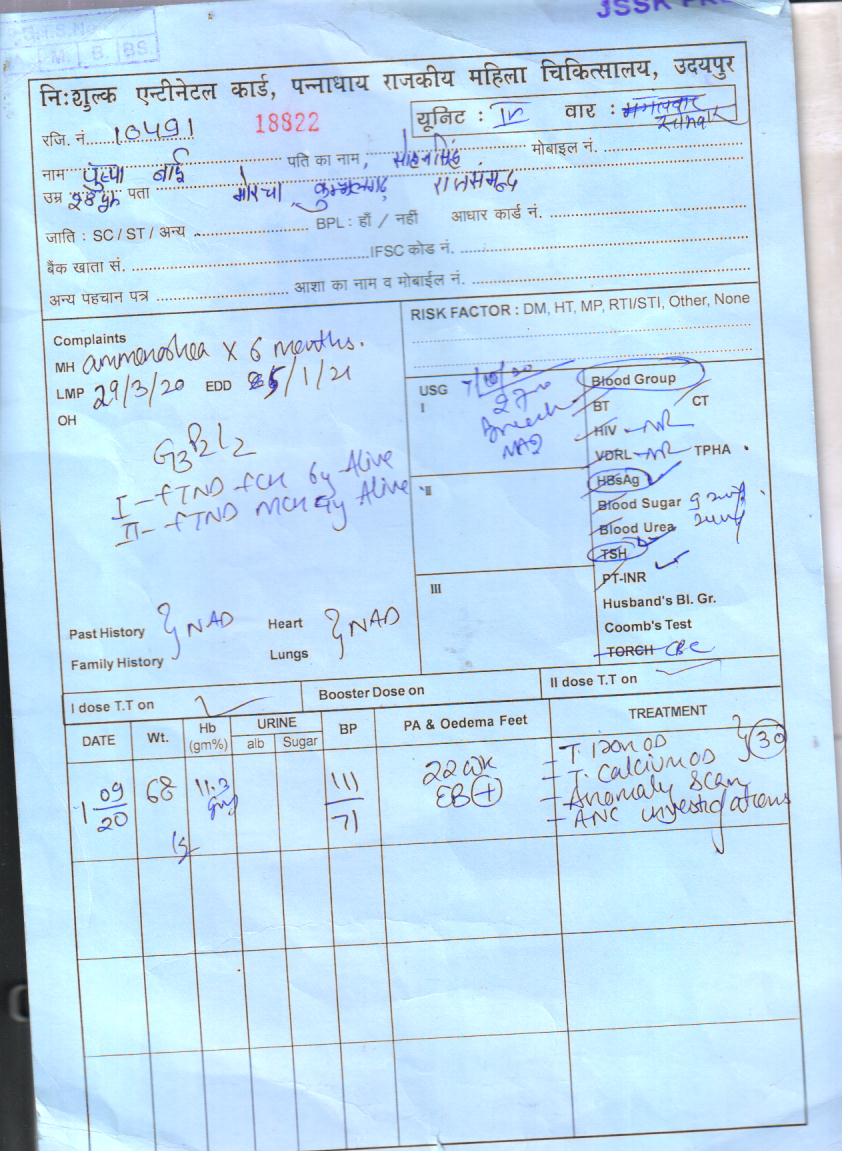 JSSK
M. B. BS.
नि:शुल्क एन्टीनेटल कार्ड, पन्नाधाय राजकीय महिला चिकित्सालय, उदयपुर
यूनिट : IV वार : मंगलवार
रजि. नं. 10491 18822
नाम पुष्पा बाई पति का नाम, मोबाईल नं.
उम्र 28 yr पता राजसमन्द
जाति : SC / ST / अन्य BPL : हाँ / नहीं आधार कार्ड नं.
बैंक खाता सं. IFSC कोड नं.
अन्य पहचान पत्र आशा का नाम व मोबाईल नं.
Complaints
MH ammenorrhea X 6 months.
LMP 29/3/20 EDD 5/1/21
OH
G3P2L2
I - FTND FCH 6y Alive
II - FTND MCH 4y Alive
Past History } NAD Heart } NAD
Family History Lungs
RISK FACTOR : DM, HT, MP, RTI/STI, Other, None
USG 7/10/20
I
Breech
II
III
Blood Group
BT CT
HIV - NR
VDRL - NR TPHA
HBsAg
Blood Sugar
Blood Urea
TSH
PT-INR
Husband's Bl. Gr.
Coomb's Test
TORCH CBC
I dose T.T on Booster Dose on II dose T.T on
DATE Wt. Hb (gm%) URINE alb Sugar BP PA & Oedema Feet TREATMENT
1/09/20 68 kg 11.3 gm 111/71 22 wk
EB +
- T. Iron OD
- T. Calcium OD } 30
- Anomaly Scan
- ANC investigations